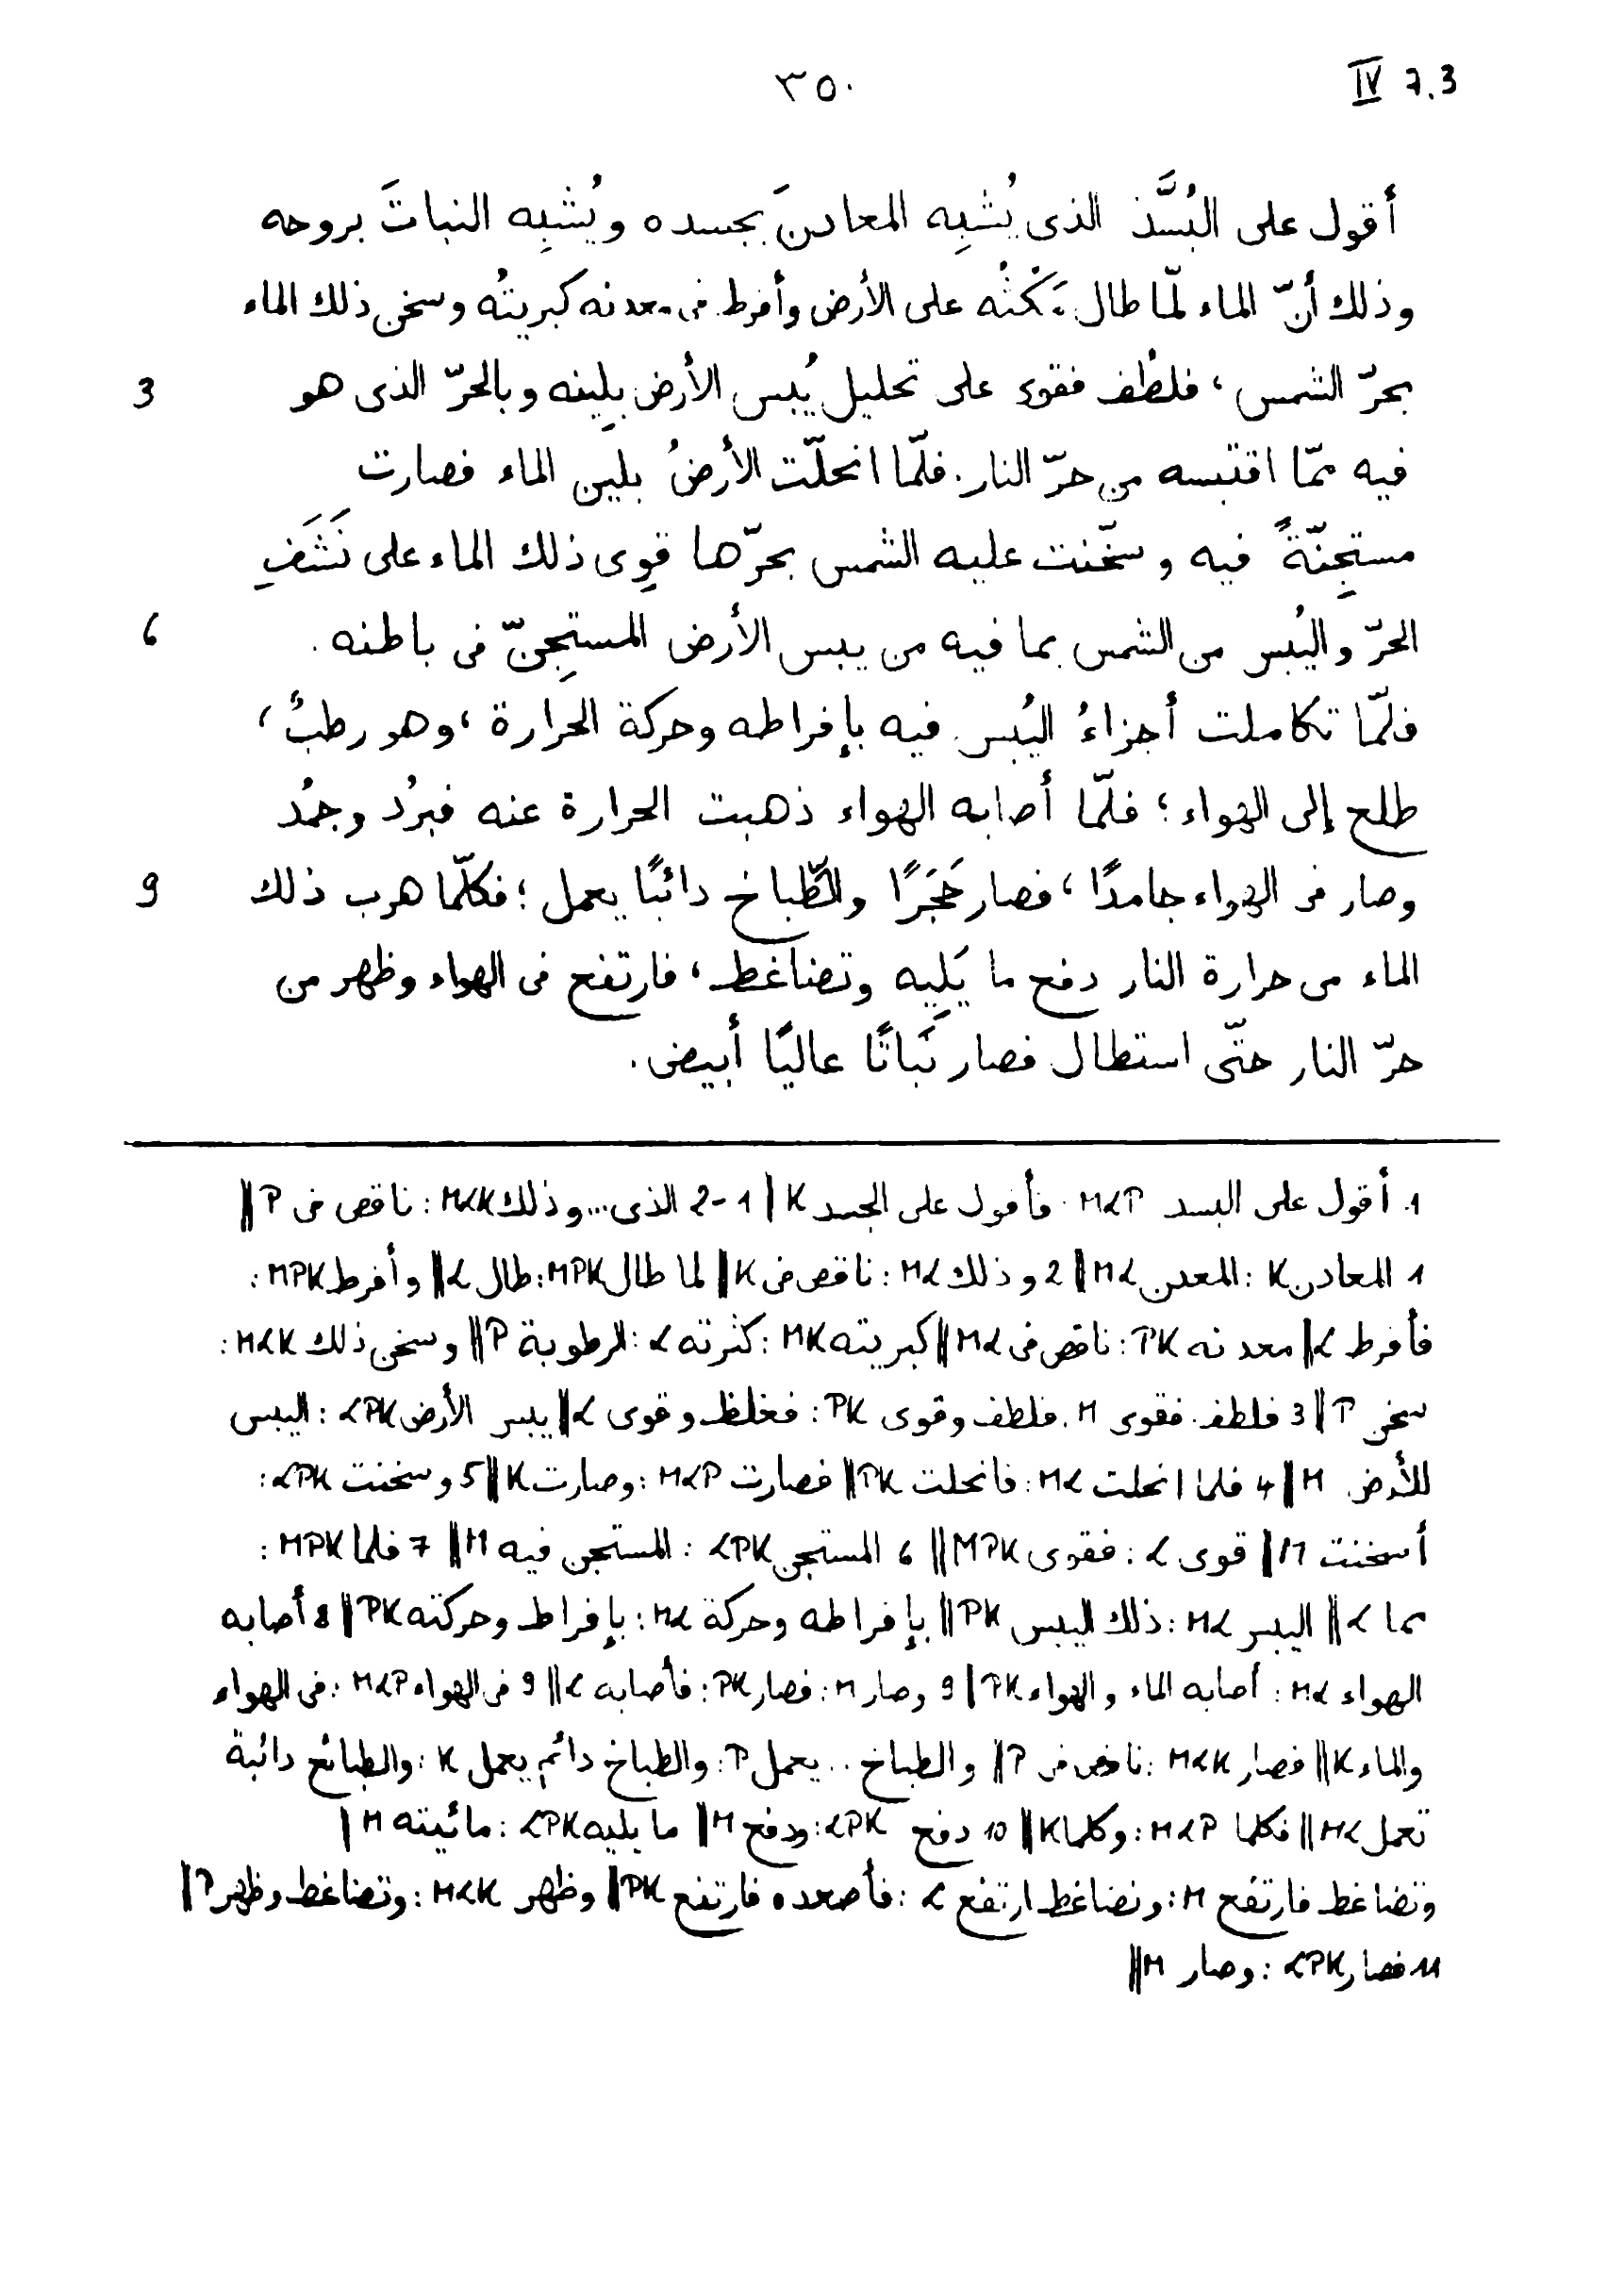 ٣٥٠ IV 7.3
أقول على البُسَّذ الذى يُشبِه المعادنَ بجسده ويُشبِه النباتَ بروحه
وذلك أنّ الماء لمّا طال مَكْثُه على الأرض وأفرط فى معدنه كبريتُه وسخن ذلك الماء
3 بحرّ الشمس، فلطُف فقوى على تحليل يُبس الأرض بلِينه وبالحرّ الذى هو
فيه ممّا اقتبسه من حرّ النار. فلمّا انحلّت الأرضُ بلين الماء فصارت
مستجِنّةً فيه وسخّنت عليه الشمس بحرّها قوِى ذلك الماء على نَشَفِ
6 الحرّ واليُبس من الشمس بما فيه من يبس الأرض المستجِنّ فى باطنه.
فلمّا تكاملت أجزاءُ اليُبس فيه بإفراطه وحركة الحرارة، وهو رطبٌ،
طلع إلى الهواء؛ فلمّا أصابه الهواء ذهبت الحرارة عنه فبرُد وجمُد
9 وصار فى الهواء جامدًا، فصار حَجَرًا والطّبّاخ دائبًا يعمل؛ فكلّما هرب ذلك
الماء من حرارة النار دفع ما يَلِيه وتضاغط، فارتفع فى الهواء وظهر من
حرّ النار حتّى استطال فصار نَباتًا عاليًا أبيض.
1. أقول على البسد MαP: فأقول على الجسد K | 1-2 الذى...وذلك MαK: ناقص فى P ||
1 المعادن K: المعدن Mα || 2 وذلك Mα: ناقص فى K || لما طال MPK: طال α || وأفرط MPK:
فأفرط α || معدنه PK: ناقص فى Mα || كبريته MK: كثرته α: الرطوبة P || وسخن ذلك MαK:
سخن P || 3 فلطف فقوى M: فلطف وقوى PK: فغلظ وقوى α || يبس الأرض αPK: اليبس
للأرض M || 4 فلما انحلت Mα: فانحلت PK || فصارت MαP: وصارت K || 5 وسخنت αPK:
أسخنت M || قوى α: فقوى MPK || 6 المستجن αPK: المستجن فيه M || 7 فلما MPK:
بما α || اليبس Mα: ذلك اليبس PK || بإفراطه وحركة Mα: بإفراط وحركته PK || 8 أصابه
الهواء Mα: أصابه الماء والهواء PK | 9 وصار M: فصار PK: فأصابه α || 9 فى الهواء MαP: فى الهواء
والماء K || فصار MαK: ناقص فى P || والطباخ .. يعمل P: والطباخ دائم يعمل K: والطبائع دائبة
تعمل Mα || فكلما MαP: وكلما K || 10 دفع αPK: ودفع M || ما يليه αPK: مائيته M |
وتضاغط فارتفع M: وتضاغط ارتفع α: فأصعده فارتفع PK || وظهر MαK: وتضاغط وظهر P ||
11 فصار αPK: وصار M ||